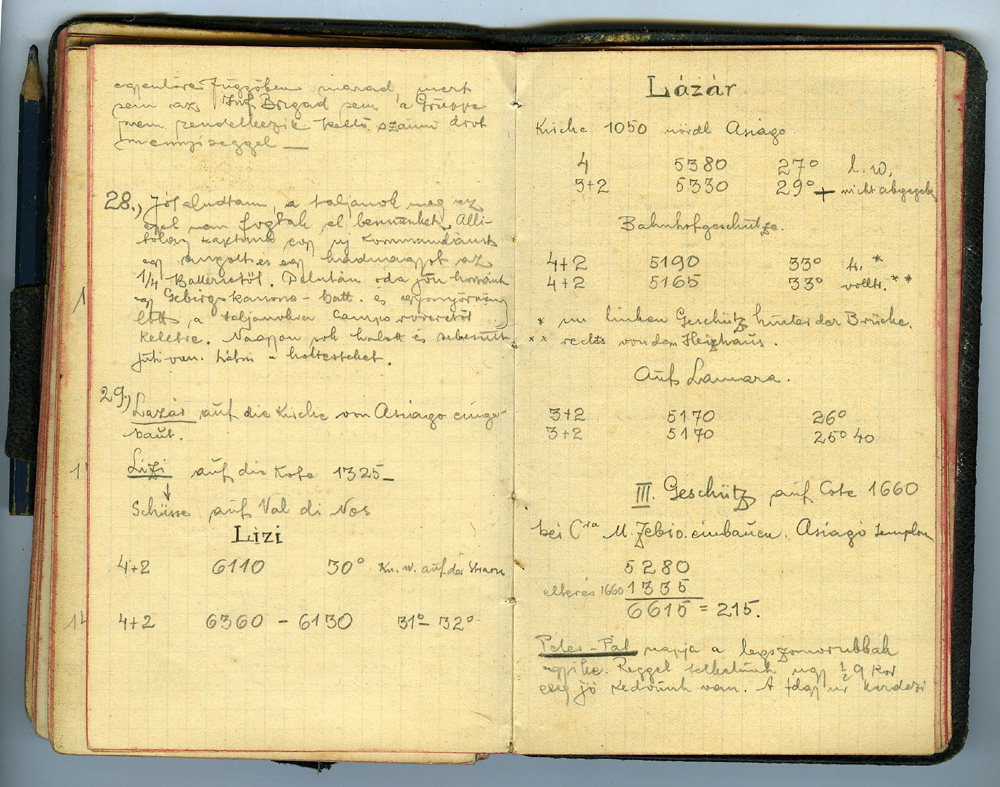 függőben marad, mert
sem az Inf. Brigad sem a Gruppe
nem rendelkezik kellő számú drót
mennyiséggel —
28., Jól aludtam, a taljanok még az
éjjel nem fogtak el bennünket. Alli-
tólag kaptunk egy új Kommandánst
egy
1/4 Batterietől. Délután oda jön hozzánk
egy Gebirgskanons-batt. és
lőtt a taljanokra Campo
keletre. Nagyon sok halott és sebesült
van. Látni a holtesteket.
29., Lazár auf die Kirche von Asiago einge-
baut.
Lizi auf die Kote 1325
Schüsse auf Val di Nos
Lizi
4+2 6110 30° Kn. W. auf der Strasse
4+2 6360 - 6130 31° - 32°
Lázár
Kirche 1050 nördl Asiago.
4 5380 27° l. w.
3+2 5330 29° + nicht abgegeb
Bahnhofgeschütze.
4+2 5190 33° k. *
4+2 5165 33° vollt. **
* im linken Geschütz hinter der Brücke.
** rechts von dem Heizhaus.
Auf Lamara.
3+2 5170 26°
3+2 5170 25° 40
III. Geschütz auf Cote 1660
bei Cra M. Zebio einbauen. Asiagó templom
5280
eltérés 1660 1335
6615 = 215.
Peter-Pál napja a legszomorúbbak
egyike. Reggel felkelünk úgy ½ 9 kor
elég jó kedvünk van. A főhgy úr kérdezi